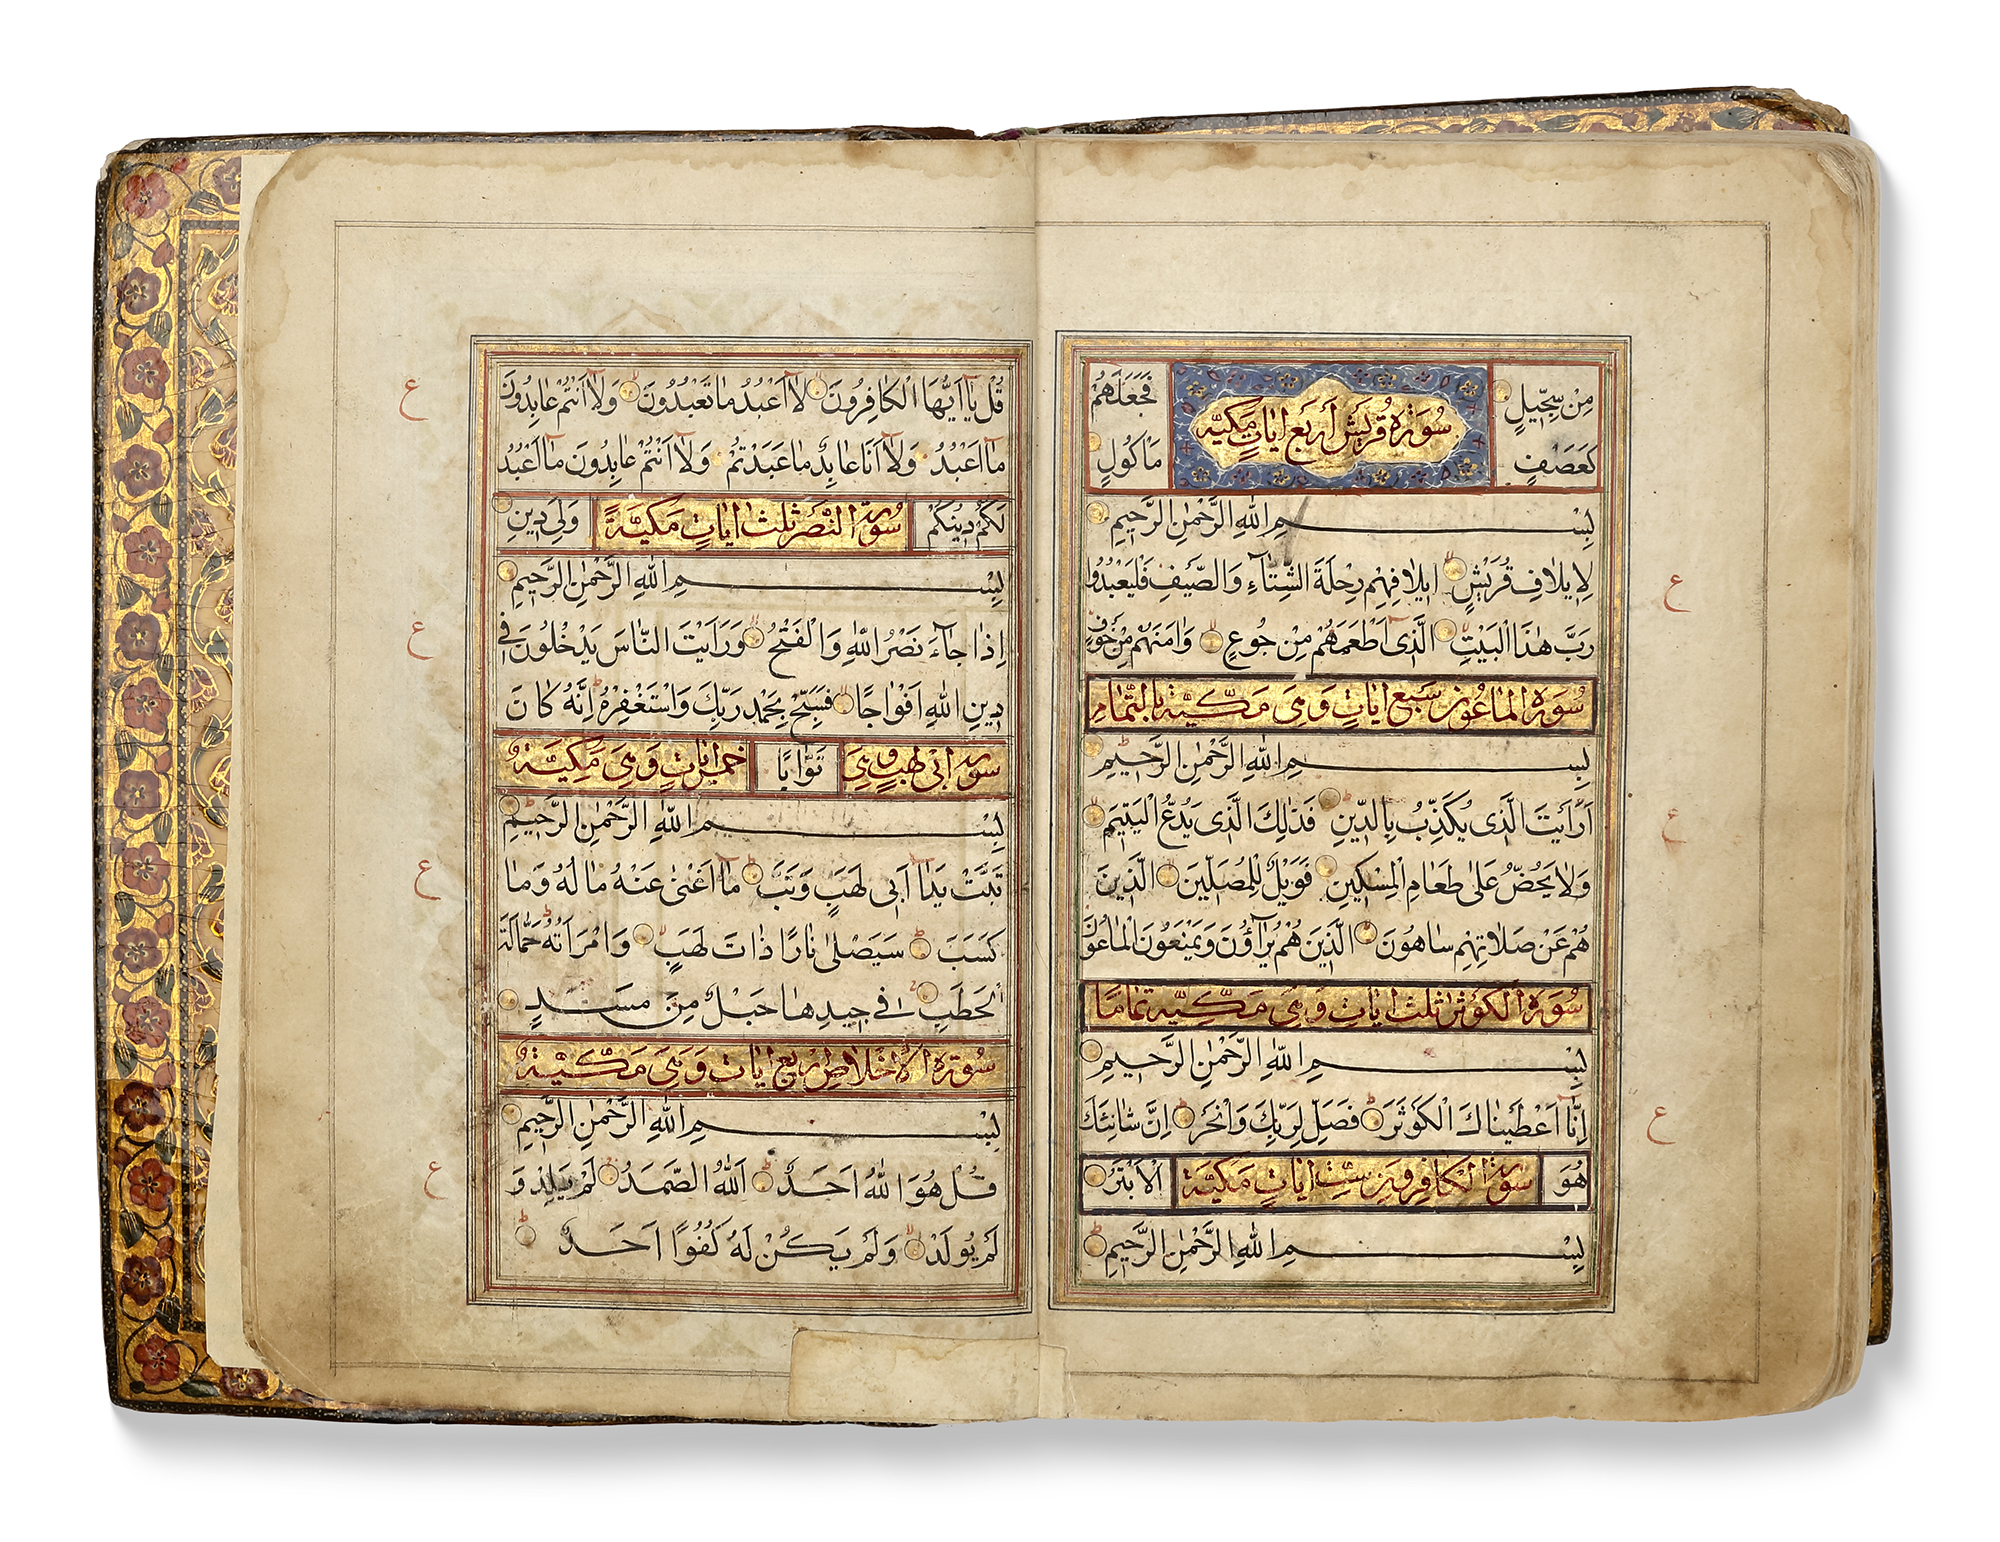 مِنْ سِجِّيلٍ سُورَةُ قُرَيْش أَرْبَع اٰيَاتٍ مَكِيَّه فَجَعَلَهُمْ
كَعَصْفٍ مَاْكُولٍ
بِسْمِ اللّٰهِ الرَّحْمٰنِ الرَّحِيمِ
لِاِيلَافِ قُرَيْشٍ اِيلَافِهِمْ رِحْلَةَ الشِّتَآءِ وَالصَّيْفِ فَلْيَعْبُدُوا
رَبَّ هٰذَا الْبَيْتِ الَّذِى اَطْعَمَهُمْ مِنْ جُوعٍ وَاٰمَنَهُمْ مِنْ خَوْفٍ
سُورَةُ الْمَاعُونَ سَبْعَ اٰيَاتٍ وَهِىَ مَكِّيَّة بِالتَّمَامِ
بِسْمِ اللّٰهِ الرَّحْمٰنِ الرَّحِيمِ
اَرَاَيْتَ الَّذِى يُكَذِّبُ بِالدِّينِ فَذٰلِكَ الَّذِى يَدُعُّ الْيَتِيمَ
وَلَا يَحُضُّ عَلٰى طَعَامِ الْمِسْكِينِ فَوَيْلٌ لِلْمُصَلِّينَ الَّذِينَ
هُمْ عَنْ صَلَاتِهِمْ سَاهُونَ الَّذِينَ هُمْ يُرَآؤُنَ وَيَمْنَعُونَ الْمَاعُونَ
سُورَةُ الْكَوْثَر ثَلٰث اٰيَاتٍ وَهِىَ مَكِّيَّة تَمَامًا
بِسْمِ اللّٰهِ الرَّحْمٰنِ الرَّحِيمِ
اِنَّا اَعْطَيْنَاكَ الْكَوْثَرَ فَصَلِّ لِرَبِّكَ وَانْحَرْ اِنَّ شَانِئَكَ
هُوَ سُورَةُ الْكَافِرُونَ سِتّ اٰيَاتٍ مَكِيَّة الْاَبْتَرُ
بِسْمِ اللّٰهِ الرَّحْمٰنِ الرَّحِيمِ
ع
ع
ع
قُلْ يَا اَيُّهَا الْكَافِرُونَ لَا اَعْبُدُ مَا تَعْبُدُونَ وَلَا اَنْتُمْ عَابِدُونَ
مَا اَعْبُدُ وَلَا اَنَا عَابِدٌ مَا عَبَدْتُمْ وَلَا اَنْتُمْ عَابِدُونَ مَا اَعْبُدُ
لَكُمْ دِينُكُمْ سُورَةُ النَّصْر ثَلٰث اٰيَاتٍ مَكِيَّةٌ وَلِىَ دِينِ
بِسْمِ اللّٰهِ الرَّحْمٰنِ الرَّحِيمِ
اِذَا جَآءَ نَصْرُ اللّٰهِ وَالْفَتْحُ وَرَاَيْتَ النَّاسَ يَدْخُلُونَ فِى
دِينِ اللّٰهِ اَفْوَاجًا فَسَبِّحْ بِحَمْدِ رَبِّكَ وَاسْتَغْفِرْهُ اِنَّهُ كَانَ
سُورَة اَبِى لَهَبٍ وَهِىَ تَوَّابًا خمس اٰيَاتٍ وَهِىَ مَكِيَّةٌ
بِسْمِ اللّٰهِ الرَّحْمٰنِ الرَّحِيمِ
تَبَّتْ يَدَا اَبِى لَهَبٍ وَتَبَّ مَا اَغْنٰى عَنْهُ مَالُهُ وَمَا
كَسَبَ سَيَصْلٰى نَارًا ذَاتَ لَهَبٍ وَامْرَاَتُهُ حَمَّالَةَ
الْحَطَبِ فِى جِيدِهَا حَبْلٌ مِنْ مَسَدٍ
سُورَةُ الْاِخْلَاصِ اربع اٰيَات وَهِىَ مَكِّيَّةٌ
بِسْمِ اللّٰهِ الرَّحْمٰنِ الرَّحِيمِ
قُلْ هُوَ اللّٰهُ اَحَدٌ اَللّٰهُ الصَّمَدُ لَمْ يَلِدْ وَ
لَمْ يُولَدْ وَلَمْ يَكُنْ لَهُ كُفُوًا اَحَدٌ
ع
ع
ع
ع